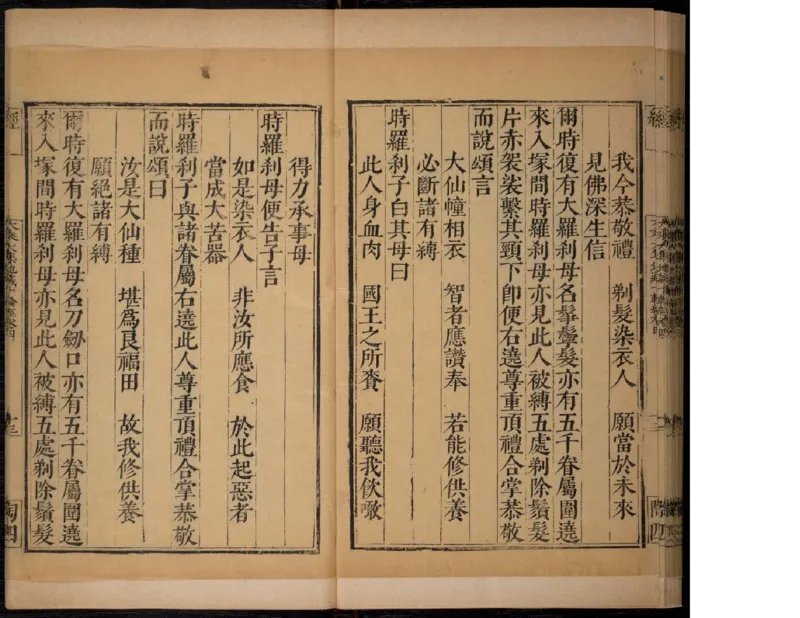 我今恭敬禮 剃髮染衣人 願當於未來
見佛深生信
爾時復有大羅刹母名髼鬇髮亦有五千眷屬圍遶
來入塚間時羅刹母亦見此人被縛五處剃除鬚髮
片赤袈裟繫其頸下卽便右遶尊重頂禮合掌恭敬
而說頌言
大仙幢相衣 智者應讚奉 若能修供養
必斷諸有縛
時羅刹子白其母曰
此人身血肉 國王之所賚 願聽我飮噉
得力承事母
時羅刹母便告子言
如是染衣人 非汝所應食 於此起惡者
當成大苦器
時羅刹子與諸眷屬右遶此人尊重頂禮合掌恭敬
而說頌曰
汝是大仙種 堪爲良福田 故我修供養
願絕諸有縛
爾時復有大羅刹母名刀劒口亦有五千眷屬圍遶
來入塚間時羅刹母亦見此人被縛五處剃除鬚髮
經
十三
陶四